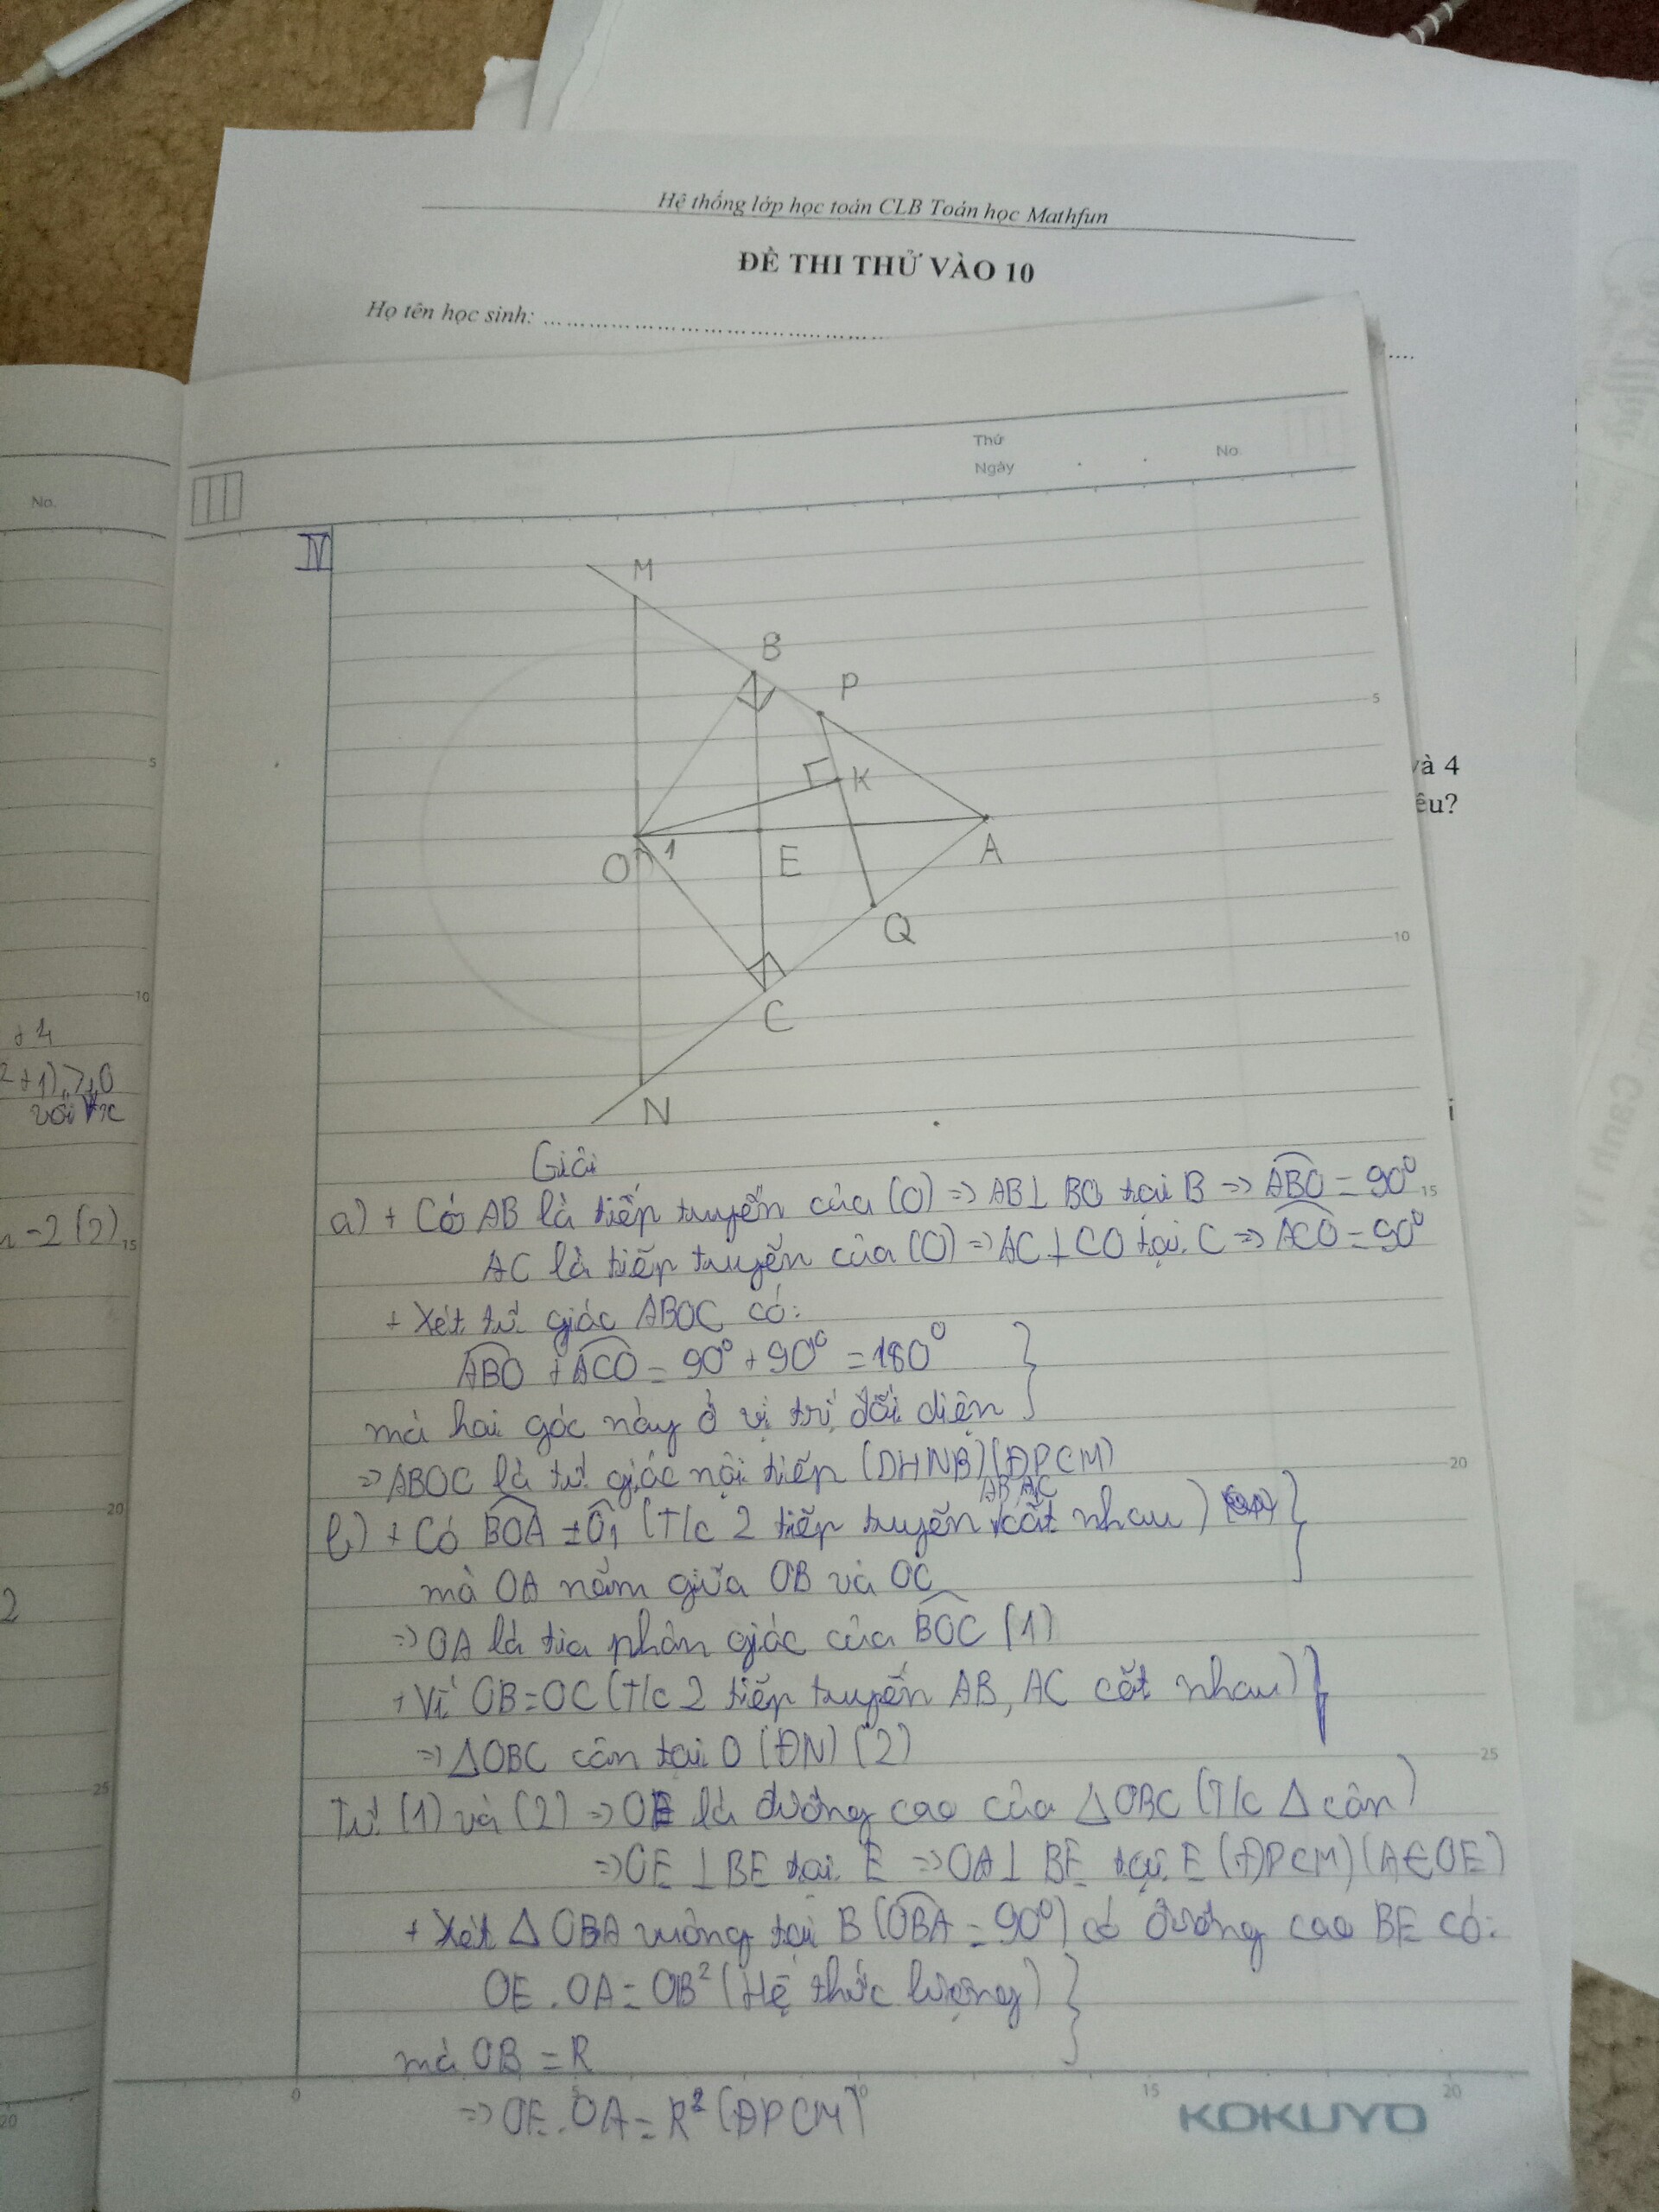 Hệ thống lớp học toán CLB Toán học Mathfun
ĐỀ THI THỬ VÀO 10
Họ tên học sinh: ................................................
....
Thứ
Ngày
No.
No.
IV
M
B
P
K
O
1
E
A
Q
C
N
5
10
15
20
25
và 4
êu?
i
5
10
15
20
25
20
+ 4
2+1) ≥ 0
với ∀x
-2 (2)
2
Giải
a) + Có AB là tiếp tuyến của (O) => AB ⊥ BO tại B => ABO = 90°
AC là tiếp tuyến của (O) => AC ⊥ CO tại C => ACO = 90°
+ Xét tứ giác ABOC có:
ABO + ACO = 90° + 90° = 180° }
mà hai góc này ở vị trí đối diện
=> ABOC là tứ giác nội tiếp (DHNB) (ĐPCM)
b) + Có BOA = O₁ (T/c 2 tiếp tuyến AB, AC cắt nhau) }
mà OA nằm giữa OB và OC
=> OA là tia phân giác của BOC (1)
+ Vì OB = OC (T/c 2 tiếp tuyến AB, AC cắt nhau) }
=> ΔOBC cân tại O (ĐN) (2)
Từ (1) và (2) => OE là đường cao của ΔOBC (T/c Δ cân)
=> OE ⊥ BE tại E => OA ⊥ BE tại E (ĐPCM) (A ∈ OE)
+ Xét Δ OBA vuông tại B (OBA = 90°) có đường cao BE có:
OE . OA = OB² (Hệ thức lượng) }
mà OB = R
=> OE . OA = R² (ĐPCM)
0
5
10
15
20
KOKUYO